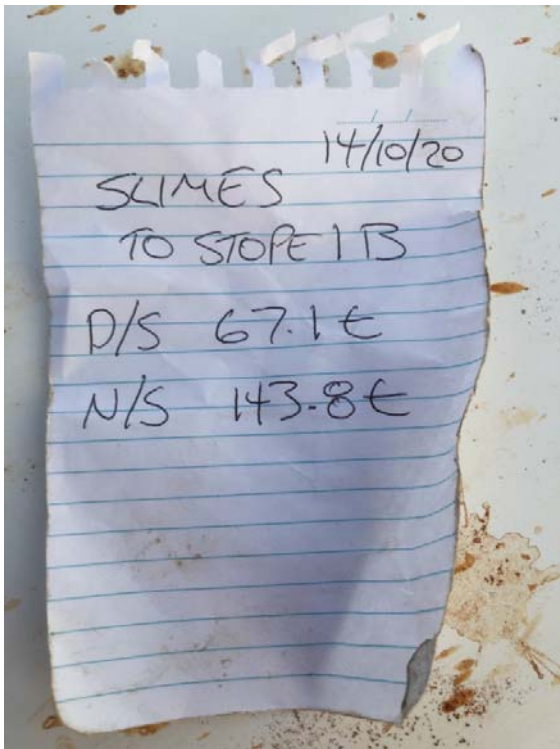 14/10/20
SLIMES
TO STOPE 1 B
D/S 67.1 t
N/S 143.8 t